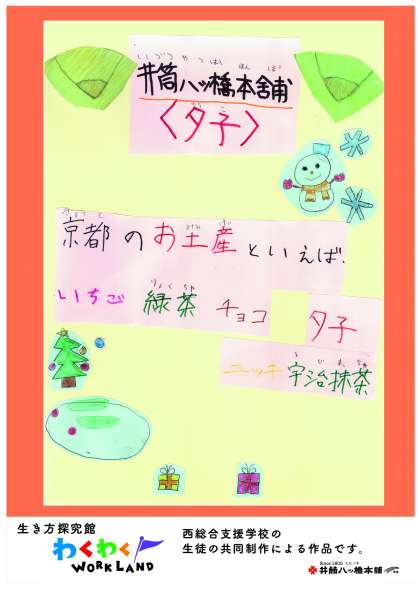 いづつやつはしほんぽ
井筒八ッ橋本舗
ゆうこ
〈夕子〉
きょうと みやげ
京都のお土産といえば、
りょくちゃ
いちご 緑茶 チョコ 夕子
うじまっちゃ
ニッキ 宇治抹茶
生き方探究館
わくわく
WORK LAND
西総合支援学校の
生徒の共同制作による作品です。
Since 1805
井筒八ッ橋本舗